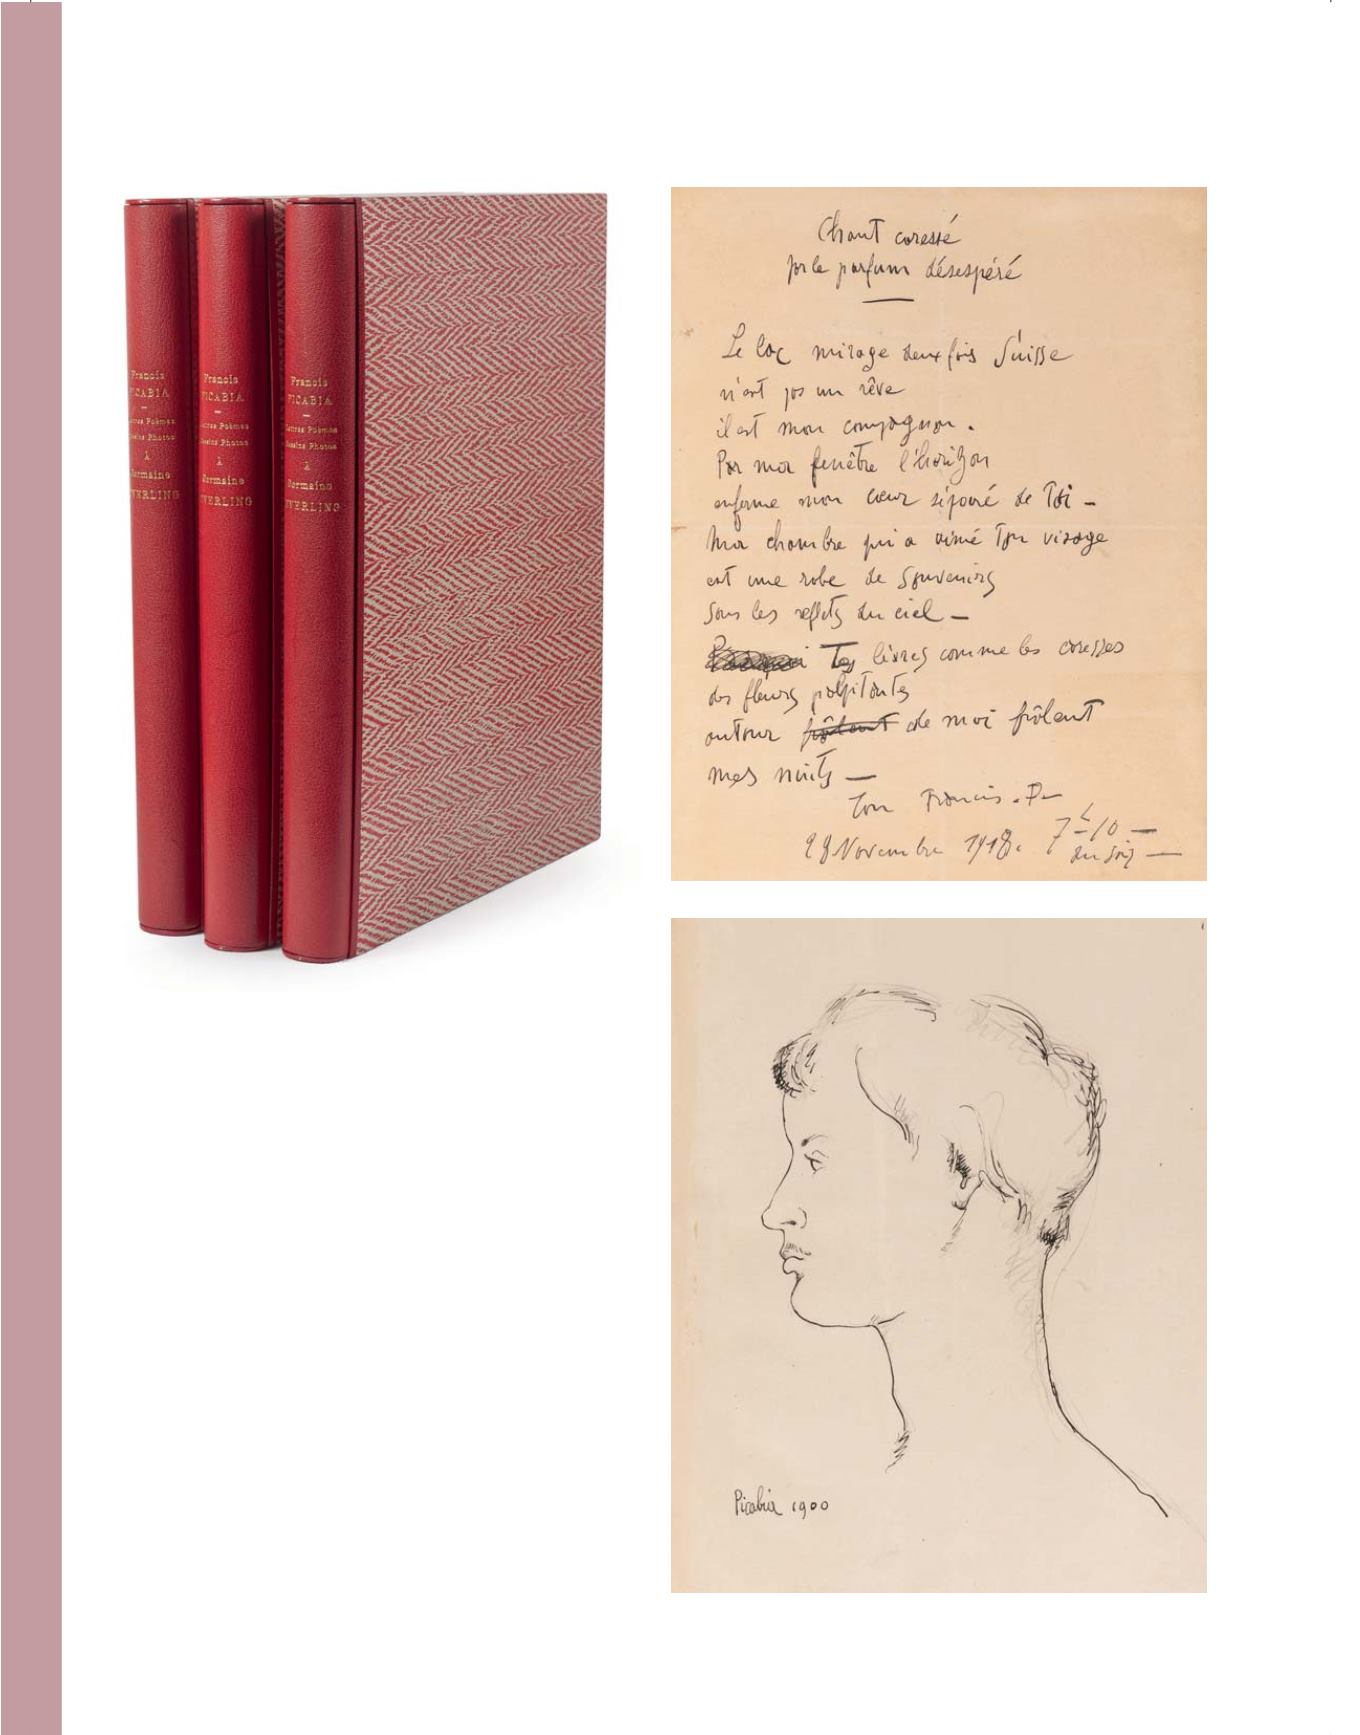 Francis
PICABIA
Lettres Poèmes
Dessins Photos
à
Germaine
EVERLING
Francis
PICABIA
Lettres Poèmes
Dessins Photos
à
Germaine
EVERLING
Francis
PICABIA
Lettres Poèmes
Dessins Photos
à
Germaine
EVERLING
Chant caressé
par le parfum désespéré
Le lac mirage deux fois Suisse
n'est pas un rêve
il est mon compagnon.
Par ma fenêtre l'horizon
enferme mon cœur séparé de Toi –
Ma chambre qui a aimé Ton visage
est une robe de Souvenirs
Sous les reflets du ciel –
Tes lèvres comme les caresses
des fleurs palpitantes
autour frôlent de moi frôlent
mes nuits –
Ton Francis. P–
28 Novembre 1918. 7h–10 –
du soir –
Picabia 1900